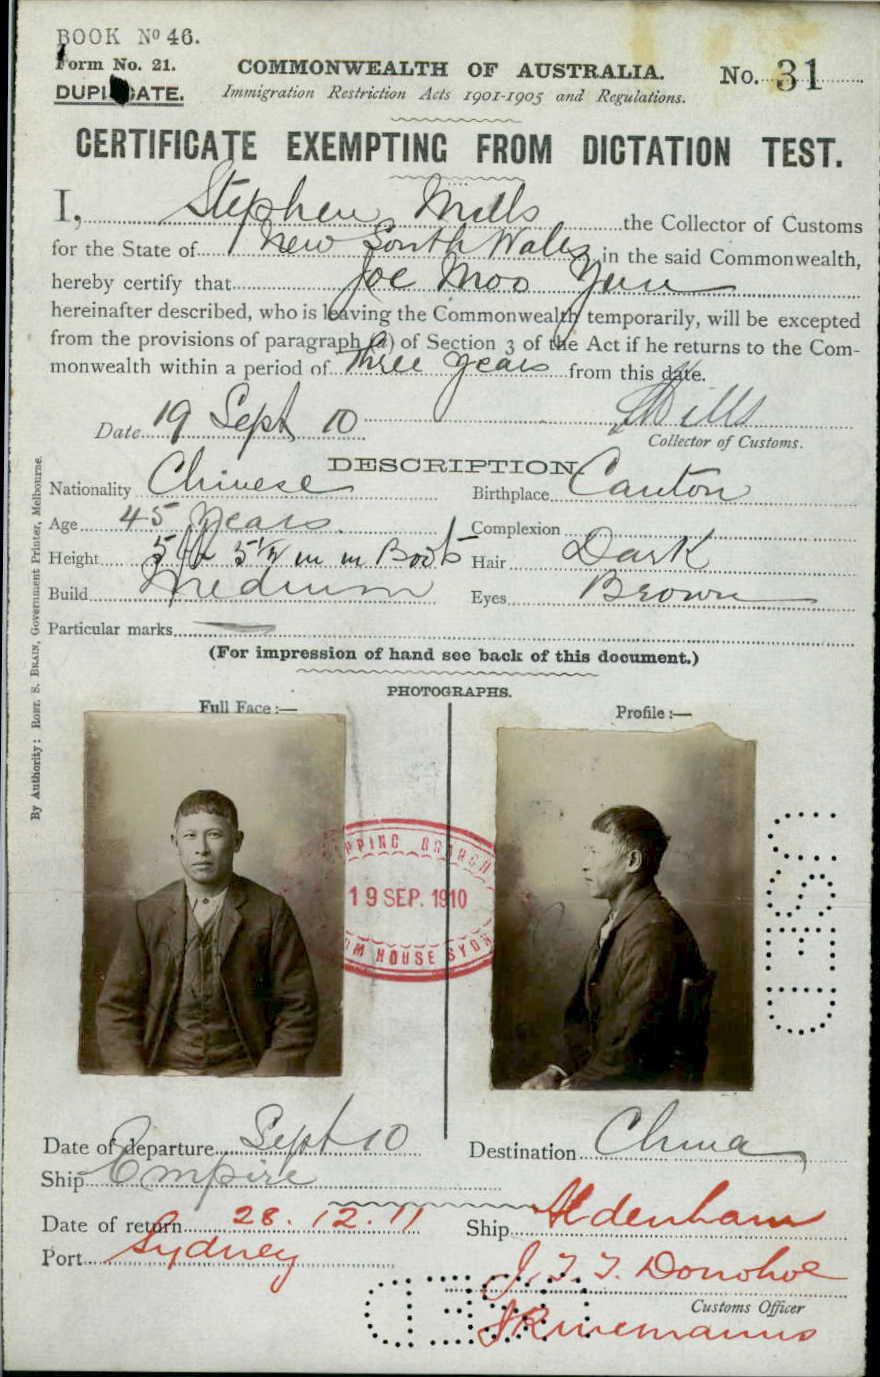 BOOK No 46.
Form No. 21.
COMMONWEALTH OF AUSTRALIA.
No. 31
DUPLICATE.
Immigration Restriction Acts 1901-1905 and Regulations.
CERTIFICATE EXEMPTING FROM DICTATION TEST.
I, Stephen Mills the Collector of Customs
for the State of New South Wales in the said Commonwealth,
hereby certify that Joe Moo Yun
hereinafter described, who is leaving the Commonwealth temporarily, will be excepted
from the provisions of paragraph (a) of Section 3 of the Act if he returns to the Com-
monwealth within a period of Three years from this date.
Date 19 Sept 10
SMills
Collector of Customs.
DESCRIPTION
Nationality Chinese
Birthplace Canton
Age 45 Years
Complexion
Height 5 ft 5½ in in Boots
Hair Dark
Build Medium
Eyes Brown
Particular marks
(For impression of hand see back of this document.)
PHOTOGRAPHS.
Full Face :—
Profile :—
By Authority: ROBT. S. BRAIN, Government Printer, Melbourne.
SHIPPING BRANCH
19 SEP. 1910
CUSTOM HOUSE SYDNEY
USED
Date of departure Sept 10
Destination China
Ship Empire
Date of return 28.12.11
Ship Aldenham
Port Sydney
J. T. T. Donohoe
Customs Officer
USED